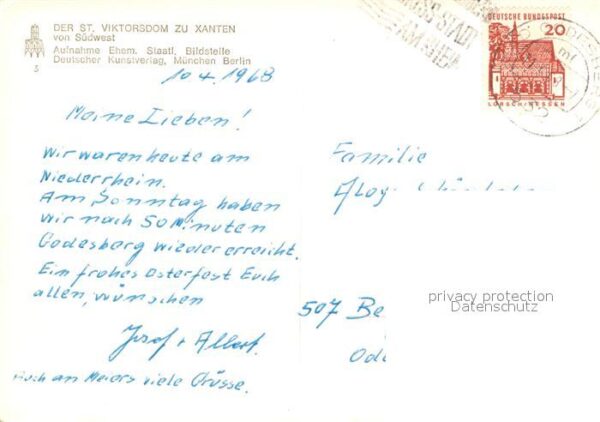 DER ST. VIKTORSDOM ZU XANTEN
von Südwest
Aufnahme Ehem. Staatl. Bildstelle
Deutscher Kunstverlag, München Berlin
5
DEUTSCHE BUNDESPOST
20
LORSCH/HESSEN
STADT
AM RHEIN
10.4.1968
Meine Lieben!
Wir waren heute am
Niederrhein.
Am Sonntag haben
wir nach 50 Minuten
Godesberg wieder erreicht.
Ein frohes Osterfest Euch
allen, wünschen
Josef + Albert.
Auch an Meiers viele Grüsse.
Familie
507 Be
privacy protection
Datenschutz